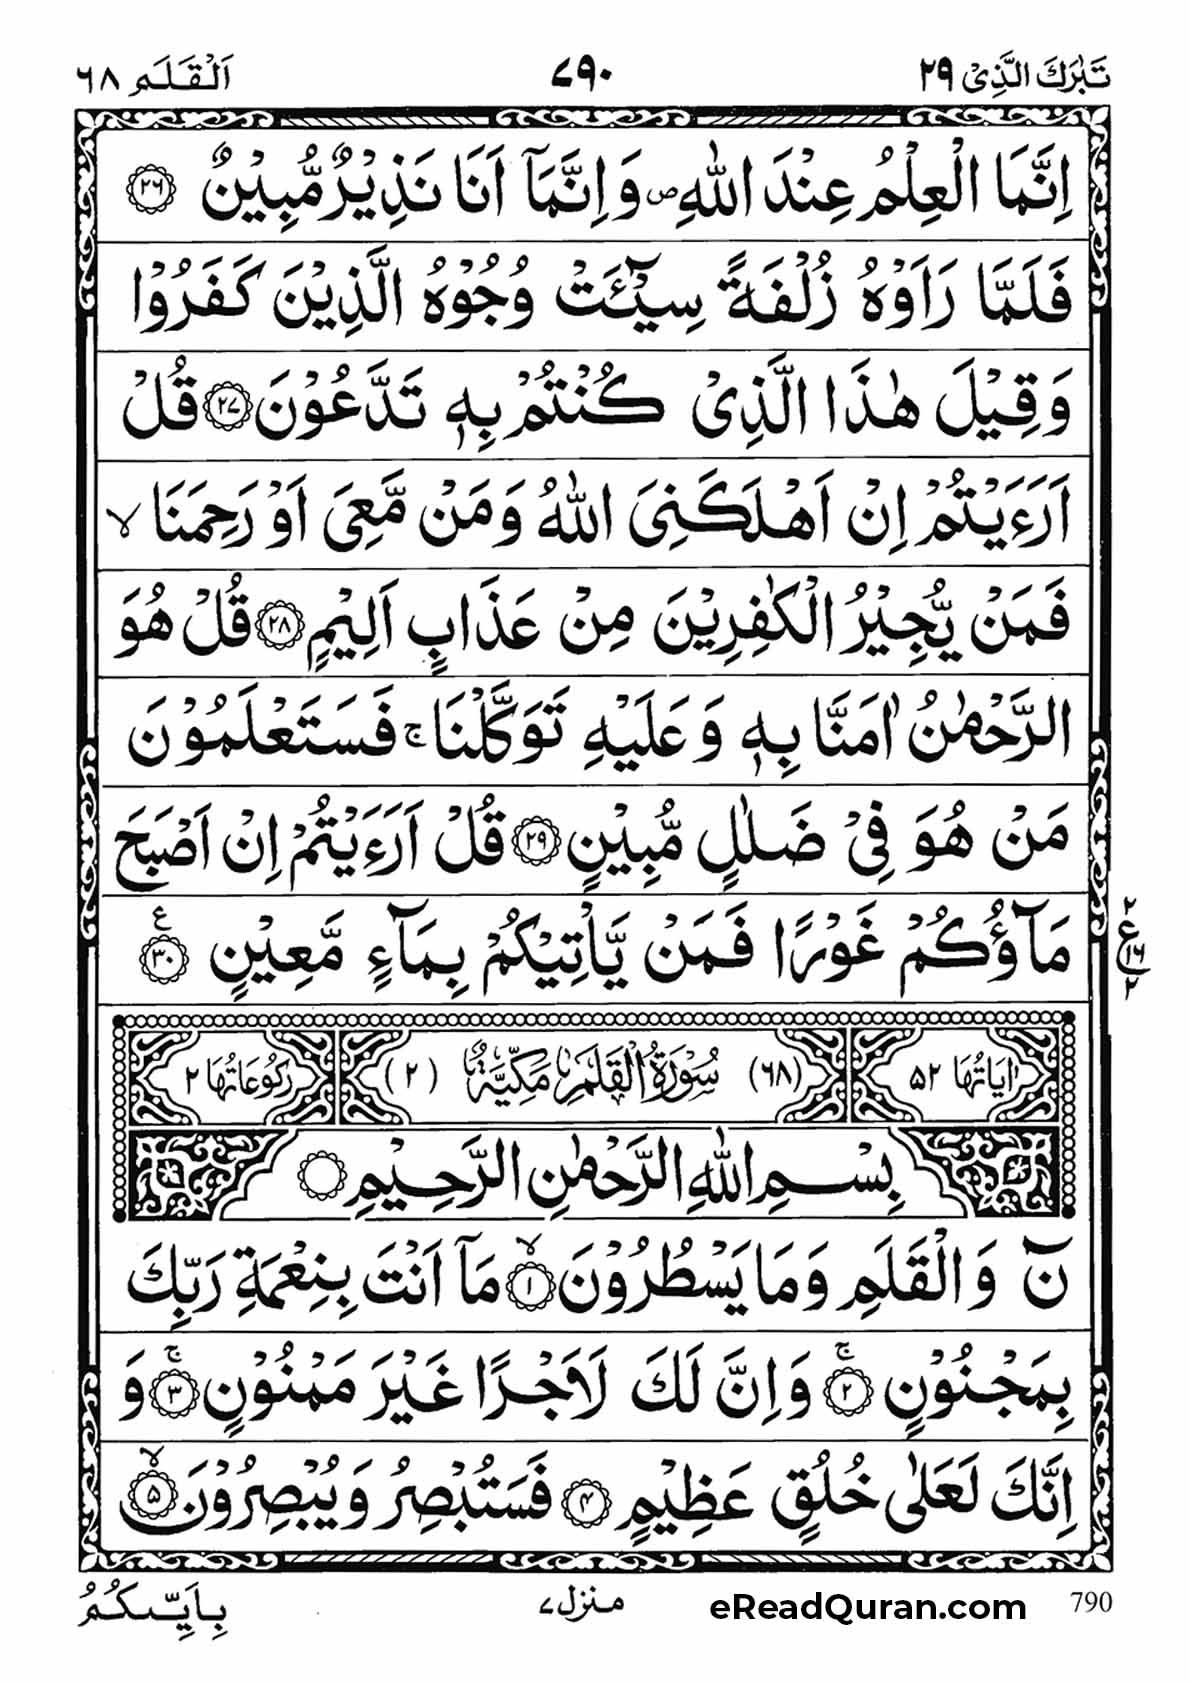 تَبٰرَكَ الَّذِیْ ٢٩
٧٩٠
اَلْقَلَم ٦٨
اِنَّمَا الْعِلْمُ عِنْدَ اللّٰهِ ۪ وَ اِنَّمَاۤ اَنَا نَذِیْرٌ مُّبِیْنٌ ٢٦
فَلَمَّا رَاَوْهُ زُلْفَةً سِیْٓـَٔتْ وُجُوْهُ الَّذِیْنَ كَفَرُوْا
وَ قِیْلَ هٰذَا الَّذِیْ كُنْتُمْ بِهٖ تَدَّعُوْنَ ٢٧ قُلْ
اَرَءَیْتُمْ اِنْ اَهْلَكَنِیَ اللّٰهُ وَ مَنْ مَّعِیَ اَوْ رَحِمَنَا ۙ
فَمَنْ یُّجِیْرُ الْكٰفِرِیْنَ مِنْ عَذَابٍ اَلِیْمٍ ٢٨ قُلْ هُوَ
الرَّحْمٰنُ اٰمَنَّا بِهٖ وَ عَلَیْهِ تَوَكَّلْنَا ۚ فَسَتَعْلَمُوْنَ
مَنْ هُوَ فِیْ ضَلٰلٍ مُّبِیْنٍ ٢٩ قُلْ اَرَءَیْتُمْ اِنْ اَصْبَحَ
مَآؤُكُمْ غَوْرًا فَمَنْ یَّاْتِیْكُمْ بِمَآءٍ مَّعِیْنٍ ٣٠ ع
٢
ع
١٦
٢
اٰیَاتُهَا ٥٢
(٦٨) سُوْرَةُ الْقَلَمِ مَكِّیَّةٌ (٢)
رُكُوْعَاتُهَا ٢
بِسْمِ اللّٰهِ الرَّحْمٰنِ الرَّحِیْمِ
نٓ وَ الْقَلَمِ وَ مَا یَسْطُرُوْنَ ۙ ١ مَاۤ اَنْتَ بِنِعْمَةِ رَبِّكَ
بِمَجْنُوْنٍ ۚ ٢ وَ اِنَّ لَكَ لَاَجْرًا غَیْرَ مَمْنُوْنٍ ۚ ٣ وَ
اِنَّكَ لَعَلٰی خُلُقٍ عَظِیْمٍ ٤ فَسَتُبْصِرُ وَ یُبْصِرُوْنَ ۙ ٥
790
eReadQuran.com
منزل ٧
بِاَیِّىكُمُ